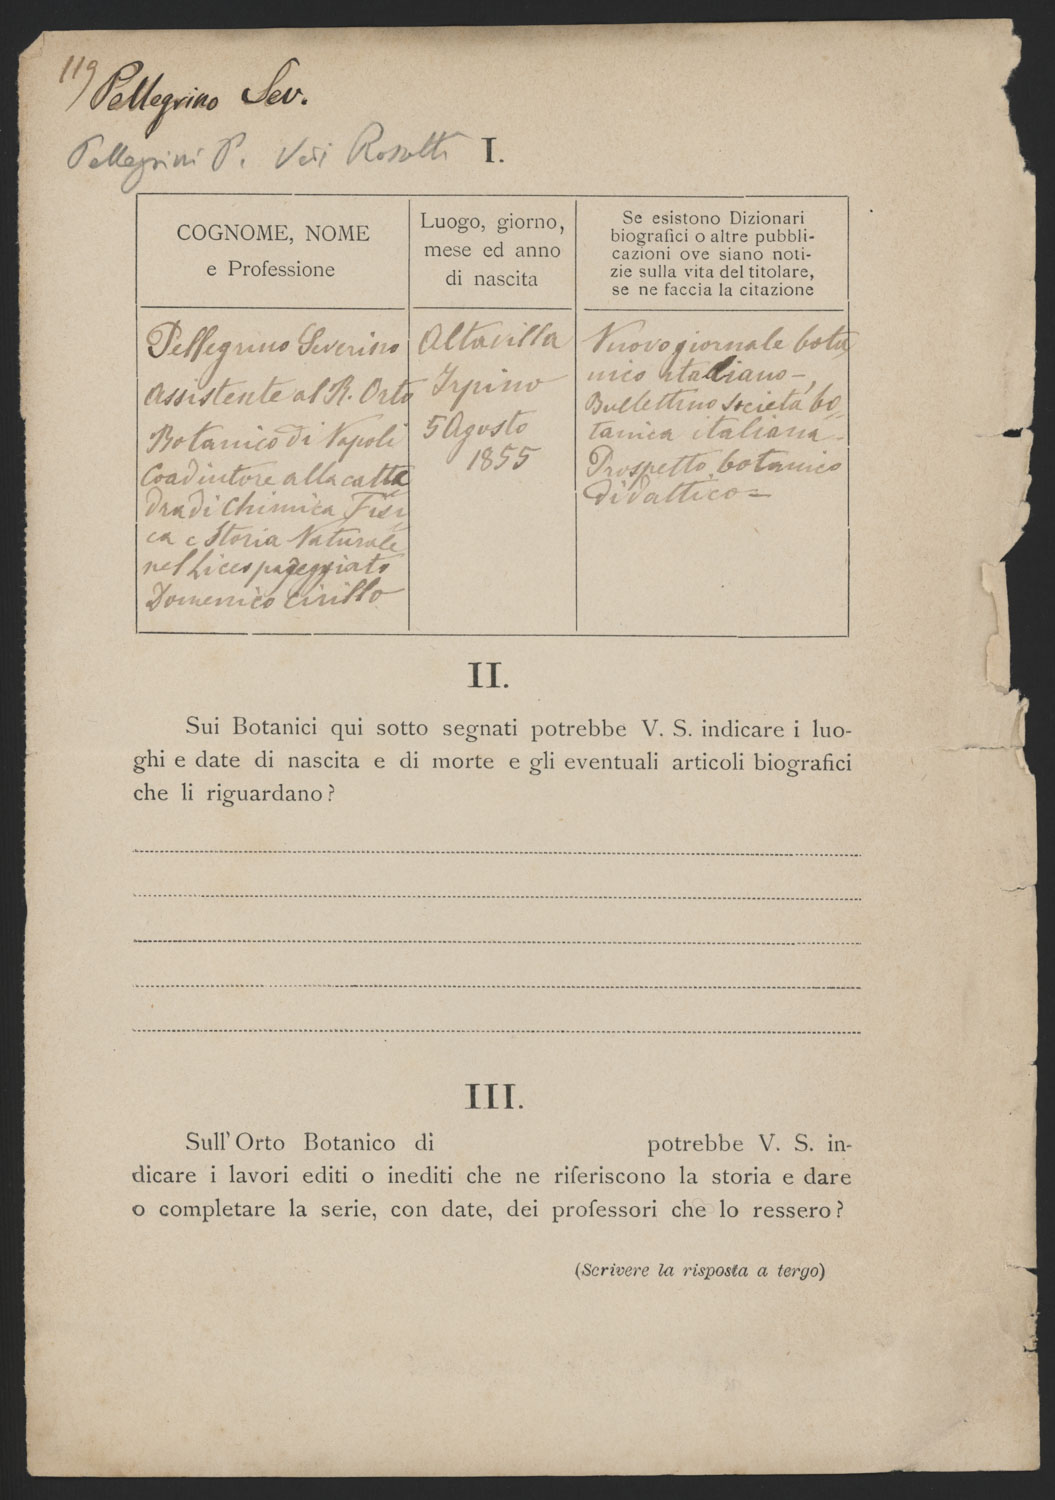 119
Pellegrino Sev.
Pellegrini P. Vedi Rosetti
I.
COGNOME, NOME
e Professione
Luogo, giorno,
mese ed anno
di nascita
Se esistono Dizionari
biografici o altre pubbli-
cazioni ove siano noti-
zie sulla vita del titolare,
se ne faccia la citazione
Pellegrino Severino
Assistente al R. Orto
Botanico di Napoli
Coadiutore alla catte
dra di Chimica, Fisi
ca e Storia Naturale
nel Liceo pareggiato
Domenico Cirillo
Altavilla
Irpino
5 Agosto
1855
Nuovo giornale bota
nico italiano -
Bullettino Società bo
tanica italiana -
Prospetto botanico
didattico =
II.
Sui Botanici qui sotto segnati potrebbe V. S. indicare i luo-
ghi e date di nascita e di morte e gli eventuali articoli biografici
che li riguardano?
III.
Sull'Orto Botanico di potrebbe V. S. in-
dicare i lavori editi o inediti che ne riferiscono la storia e dare
o completare la serie, con date, dei professori che lo ressero?
(Scrivere la risposta a tergo)